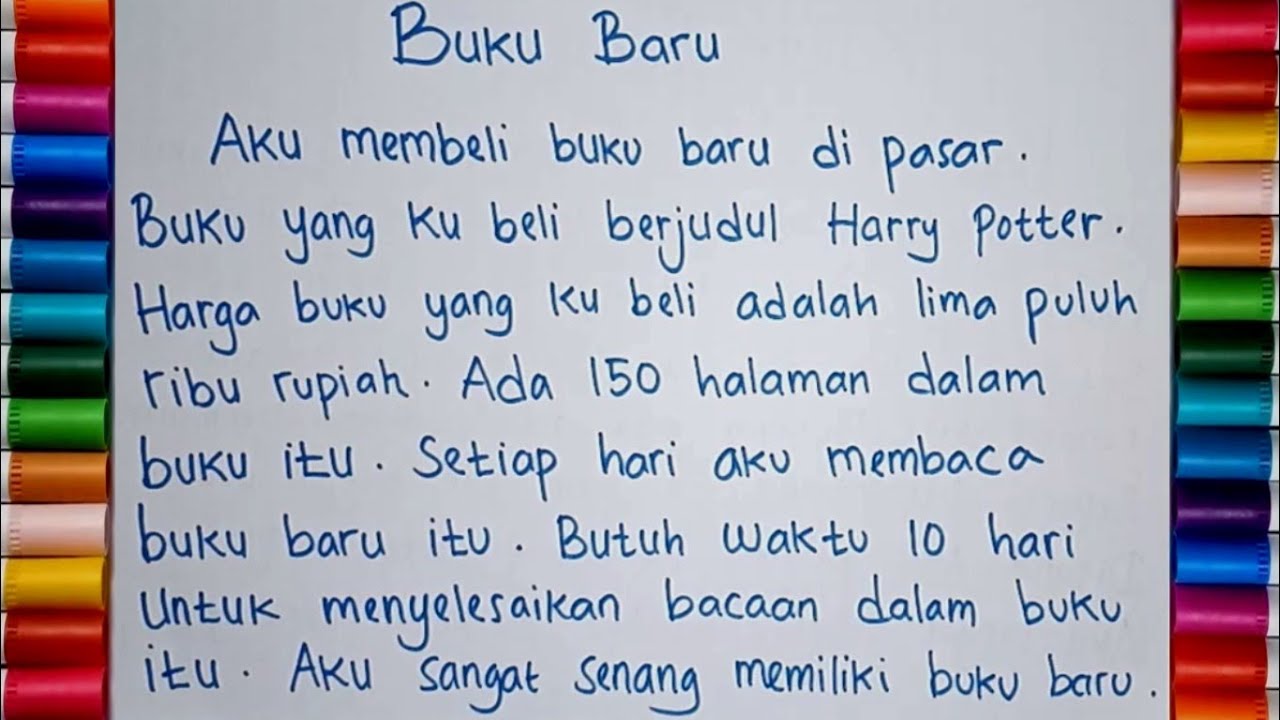 Buku Baru
Aku membeli buku baru di pasar.
Buku yang ku beli berjudul Harry Potter.
Harga buku yang ku beli adalah lima puluh
ribu rupiah. Ada 150 halaman dalam
buku itu. Setiap hari aku membaca
buku baru itu. Butuh waktu 10 hari
Untuk menyelesaikan bacaan dalam buku
itu. Aku sangat senang memiliki buku baru.